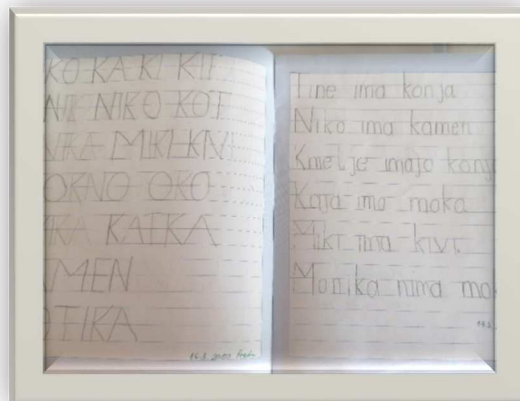 KO KA KI KIT
NIK NIKO KOT
NIKA MIKI KNJ
OKNO OKO
KAEKA
MEN
OTIKA
Tine ima konja
Niko ima kamen
Kmetje imajo konj
Kaja ima moka
Miki nima kivi.
Monika nima mo